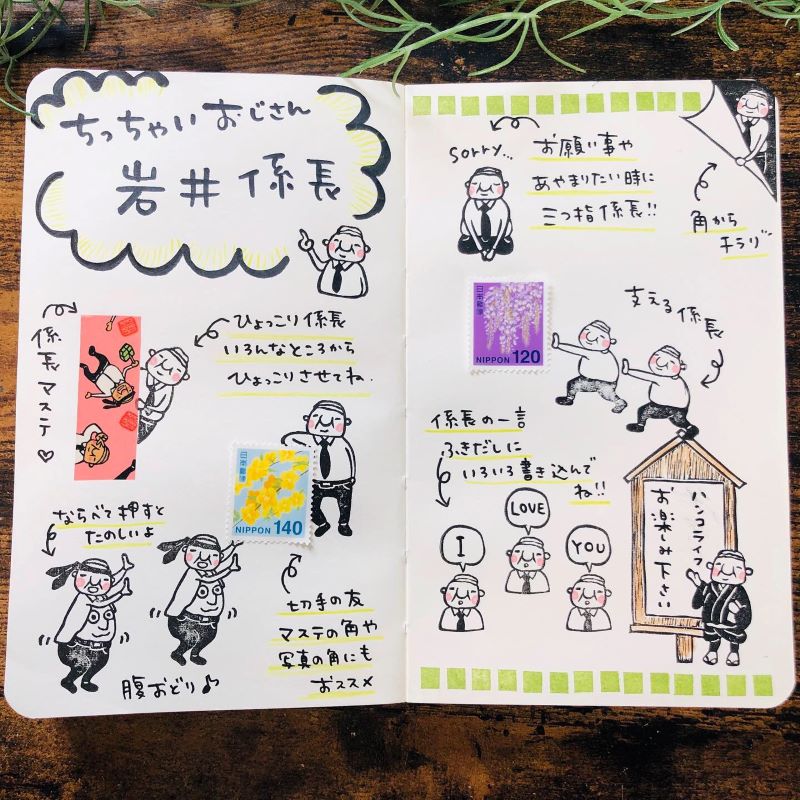 ちっちゃいおじさん
岩井係長
係長マステ♡
ひょっこり係長
いろんなところから
ひょっこりさせてね.
日本郵便
NIPPON 140
ならべて押すと
たのしいよ
腹おどり♪
切手の友
マステの角や
写真の角にも
おススメ
sorry...
お願い事や
あやまりたい時に
三つ指係長!!
角から
チラリ
日本郵便
NIPPON 120
支える係長
係長の一言
ふきだしに
いろいろ書き込んで
ね!!
I
LOVE
YOU
ハンコライフ
お楽しみ下さい